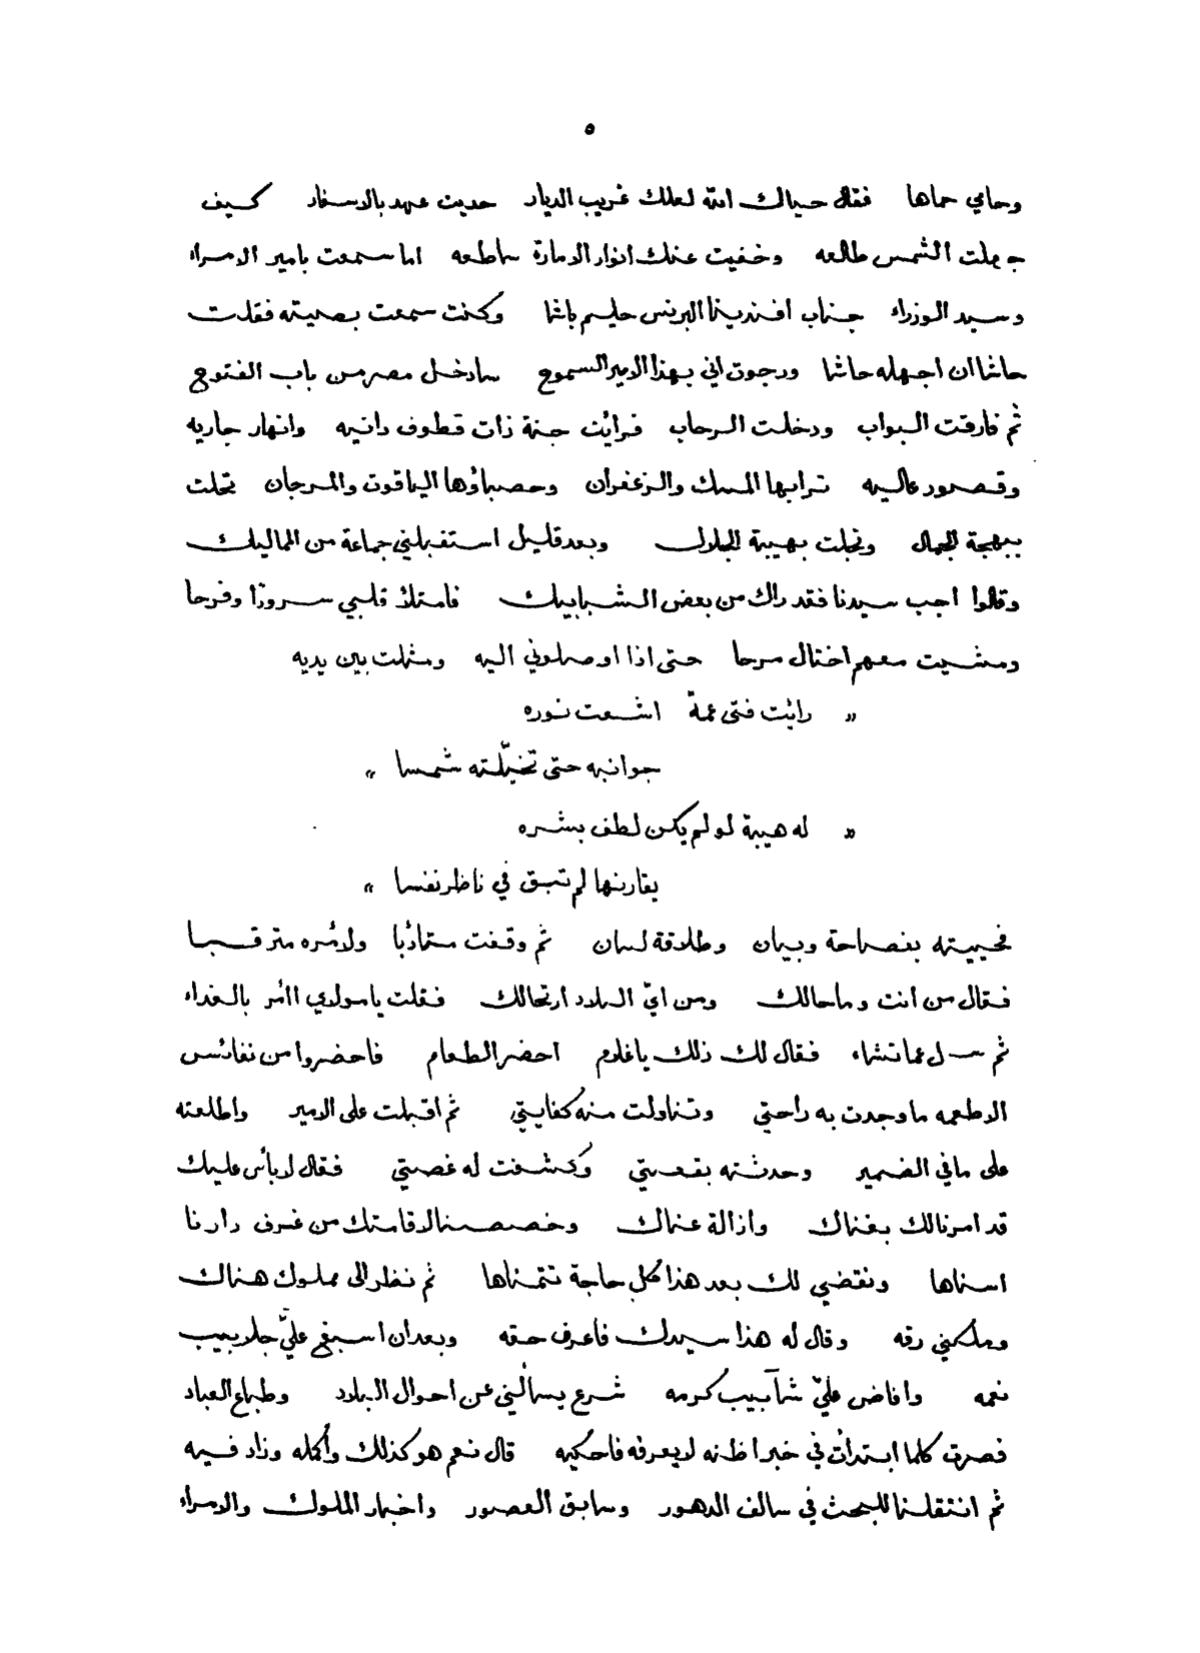 ٥
وحامي حماها فقال حياك الله لعلك غريب الديار حديث عهد بالاسفار كيف
جهلت الشمس طالعه وخفيت عنك انوار الامارة ساطعه اما سمعت بامير الامراء
وسيد الوزراء جناب افندينا البرنس حليم باشا وكنت سمعت بصيته فقلت
حاشا ان اجهله حاشا ورجوت اني بهذا الامير السموح سادخل مصر من باب الفتوح
ثم فارقت البواب ودخلت الرحاب فرايت جنة ذات قطوف دانيه وانهار جاريه
وقصور عاليه ترابها المسك والزعفران وحصباؤها الياقوت والمرجان تحلت
ببهجة الجمال وتجلت بهيبة الجلال وبعد قليل استقبلني جماعة من المماليك
وقالوا اجب سيدنا فقد راك من بعض الشبابيك فامتلأ قلبي سرورًا وفرحا
ومشيت معهم اختال مرحا حتى اذا اوصلوني اليه ومثلت بين يديه
" رايت فتى عمةّ اشعت نوره
جوانبه حتى تخيّلته شمسا "
" له هيبة لو لم يكن لطف بشره
يقارنها لم تبق في ناظر نفسا "
فحييته بفصاحة وبيان وطلاقة لسان ثم وقفت متادبًا ولامره مترقبا
فقال من انت وما حالك ومن ايّ البلاد ارتحالك فقلت يا مولاي اأمر بالغداء
ثم سل عما تشاء فقال لك ذلك يا غلام احضر الطعام فاحضروا من نفائس
الاطعمه ما وجدت به راحتي وتناولت منه كفايتي ثم اقبلت على الامير واطلعته
على ما في الضمير وحدثته بقصتي وكشفت له غصتي فقال لا بأس عليك
قد امرنا لك بغناك وازالة عناك وخصصنا لاقامتك من غرف دارنا
اسناها ونقضي لك بعد هذا كل حاجة تتمناها ثم نظر الى مملوك هناك
وملكني رقه وقال له هذا سيدك فاعرف حقه وبعد ان اسبغ عليّ جلابيب
نعمه وافاض عليّ شآبيب كرمه شرع يسألني عن احوال البلاد وطباع العباد
فصرت كلما ابتدأت في خبر اظنه لا يعرفه فاحكيه قال نعم هو كذلك وأكمله وزاد فيه
ثم انتقلنا للبحث في سالف الدهور وسابق العصور واخبار الملوك والامراء